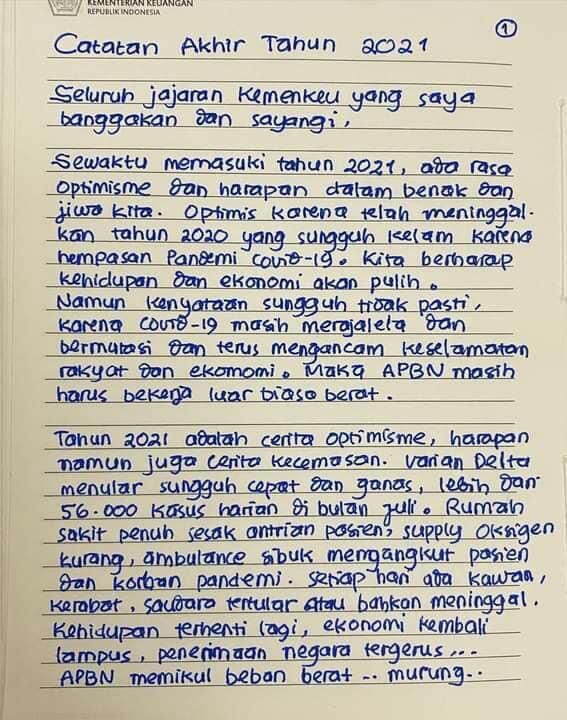 KEMENTERIAN KEUANGAN
REPUBLIK INDONESIA
1
Catatan Akhir Tahun 2021
Seluruh jajaran Kemenkeu yang saya
banggakan dan sayangi,
Sewaktu memasuki tahun 2021, ada rasa
optimisme dan harapan dalam benak dan
jiwa kita. Optimis karena telah meninggal-
kan tahun 2020 yang sungguh kelam karena
hempasan Pandemi covid-19. Kita berharap
kehidupan dan ekonomi akan pulih.
Namun kenyataan sungguh tidak pasti,
karena covid-19 masih merajalela dan
bermutasi dan terus mengancam keselamatan
rakyat dan ekomomi. Maka APBN masih
harus bekerja luar biasa berat.
Tahun 2021 adalah cerita optimisme, harapan
namun juga cerita kecemasan. Varian Delta
menular sungguh cepat dan ganas, lebih dari
56.000 kasus harian di bulan Juli. Rumah
sakit penuh sesak antrian pasien, supply Oksigen
kurang, ambulance sibuk mengangkut pasien
dan korban pandemi. Setiap hari ada kawan,
kerabat, saudara tertular atau bahkan meninggal.
Kehidupan terhenti lagi, ekonomi kembali
lampus, penerimaan negara tergerus ...
APBN memikul beban berat .. murung..